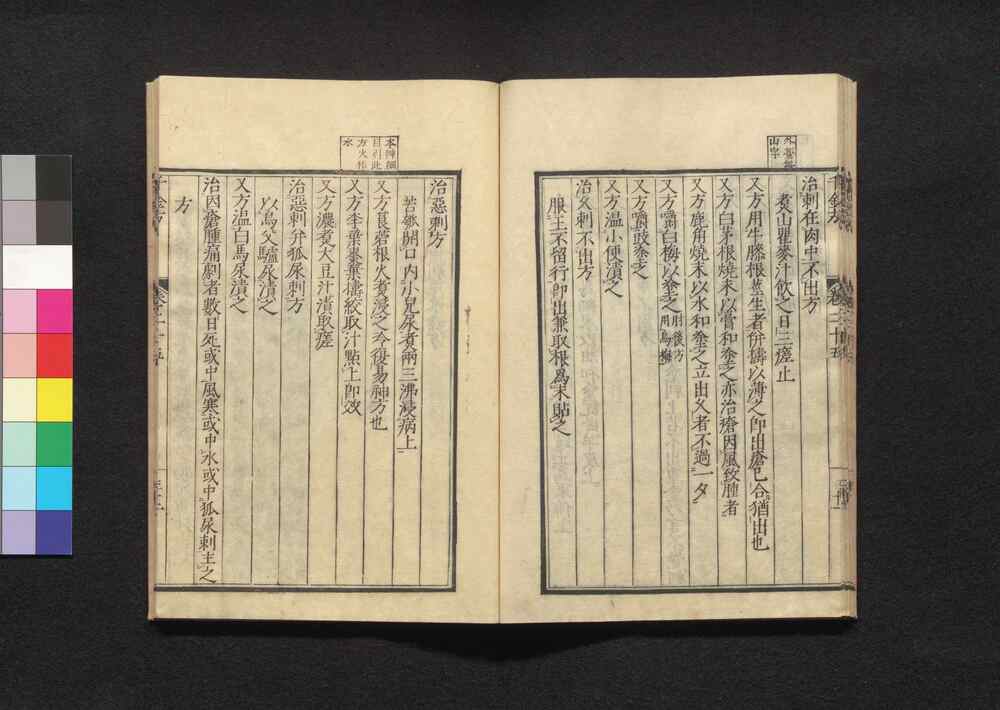 治刺在肉中不出方
煮山瞿麥汁飲之日三瘥止
又方用牛膝根莖生者併擣以薄之即出瘡已合猶出也
又方白茅根燒末以膏和塗之亦治瘡因風致腫者
又方鹿角燒末以水和塗之立出久者不過一夕
又方嚼白梅以塗之肘後方用烏梅
又方嚼豉塗之
又方溫小便漬之
治久刺不出方
服王不留行即出兼取根爲末貼之
治惡刺方
苦瓠開口內小兒尿煮兩三沸浸病上
又方莨菪根水煮浸之冷復易神方也
又方李葉棗葉擣絞取汁點上即效
又方濃煮大豆汁漬取瘥
治惡刺并狐尿刺方
以烏父驢尿漬之
又方溫白馬尿漬之
治因瘡腫痛劇者數日死或中風寒或中水或中狐尿刺主之
方